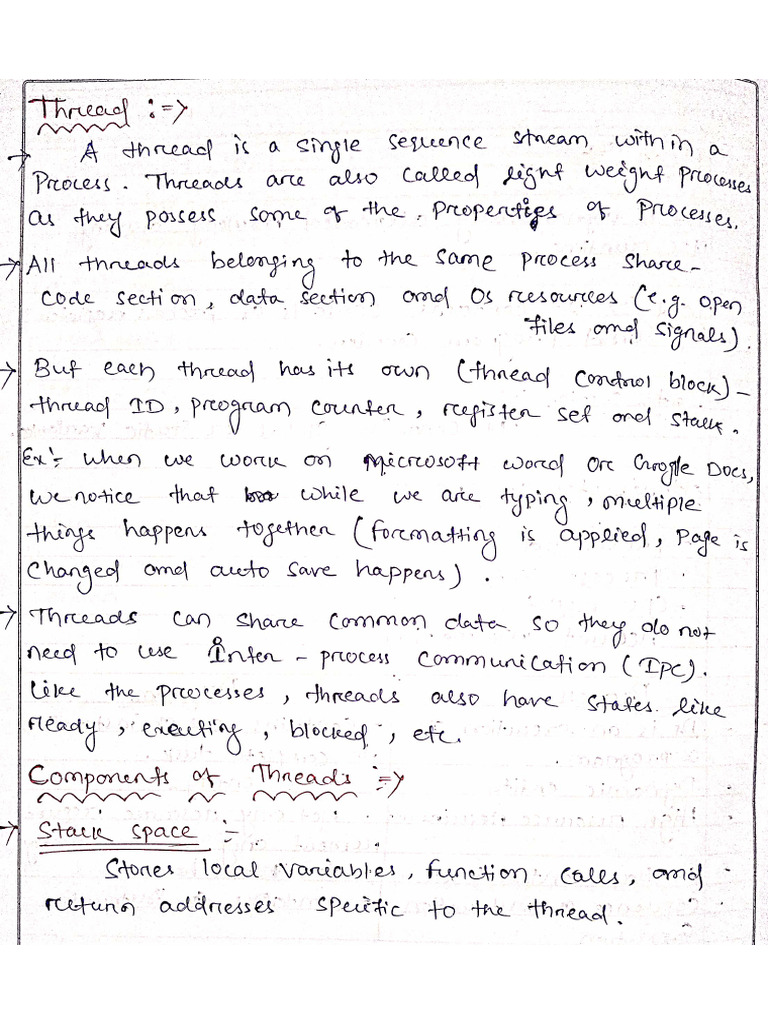 Thread :=>
→ A thread is a single sequence stream within a
Process. Threads are also called light weight processes
as they possess some of the properties of processes.
→ All threads belonging to the same process share-
code section, data section and OS resources (e.g. open
files and signals).
→ But each thread has its own (thread control block) -
thread ID, program counter, register set and stack.
Ex:- when we work on Microsoft word or Google Docs,
we notice that while we are typing, multiple
things happens together (formatting is applied, page is
changed and auto save happens).
→ Threads can share common data so they do not
need to use Inter-process communication (IPC).
Like the processes, threads also have states like
ready, executing, blocked, etc.
Components of Threads :=>
→ Stack space :-
Stores local variables, function calls, and
return addresses specific to the thread.